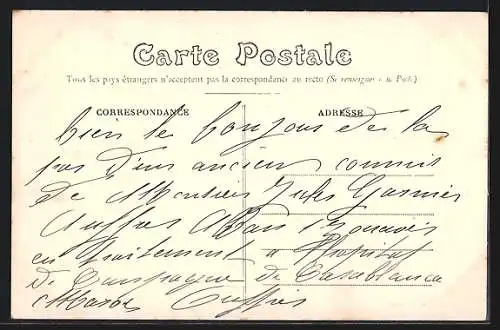 Carte Postale
Tous les pays étrangers n'acceptent pas la correspondance au recto (Se renseigner à la Poste)
CORRESPONDANCE
ADRESSE
bien le bonjour de la
pas d'un ancien commis
de Jules Garnier
Zouaves
en traitement a l'hopital
de Campagne de Casablanca
Maroc